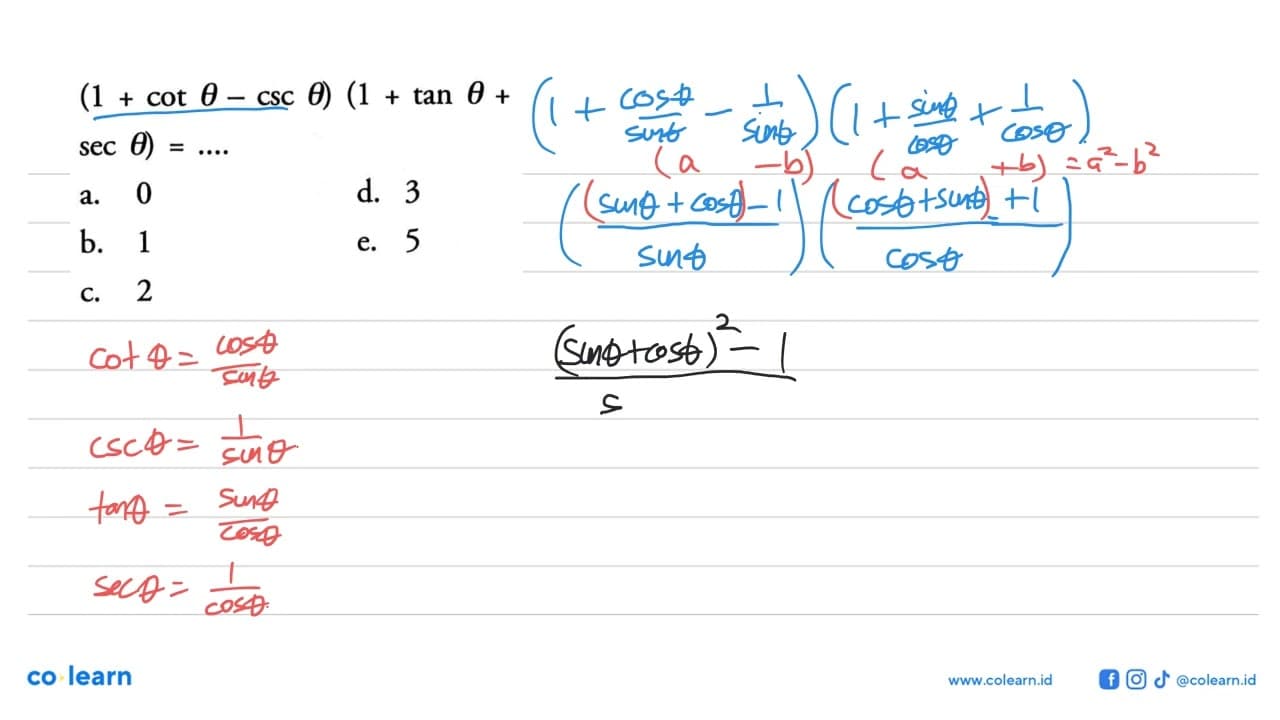 (1 + cot θ – csc θ) (1 + tan θ +
sec θ) = ....
a. 0
b. 1
c. 2
d. 3
e. 5
(1 + cosθ/sinθ - 1/sinθ)(1 + sinθ/cosθ + 1/cosθ)
(a -b) (a +b) = a²-b²
((sinθ + cosθ) - 1 / sinθ)((cosθ + sinθ) + 1 / cosθ)
(sinθ+cosθ)² - 1
s
cot θ = cosθ/sinθ
cscθ = 1/sinθ
tanθ = sinθ/cosθ
secθ = 1/cosθ
co·learn
www.colearn.id
@colearn.id